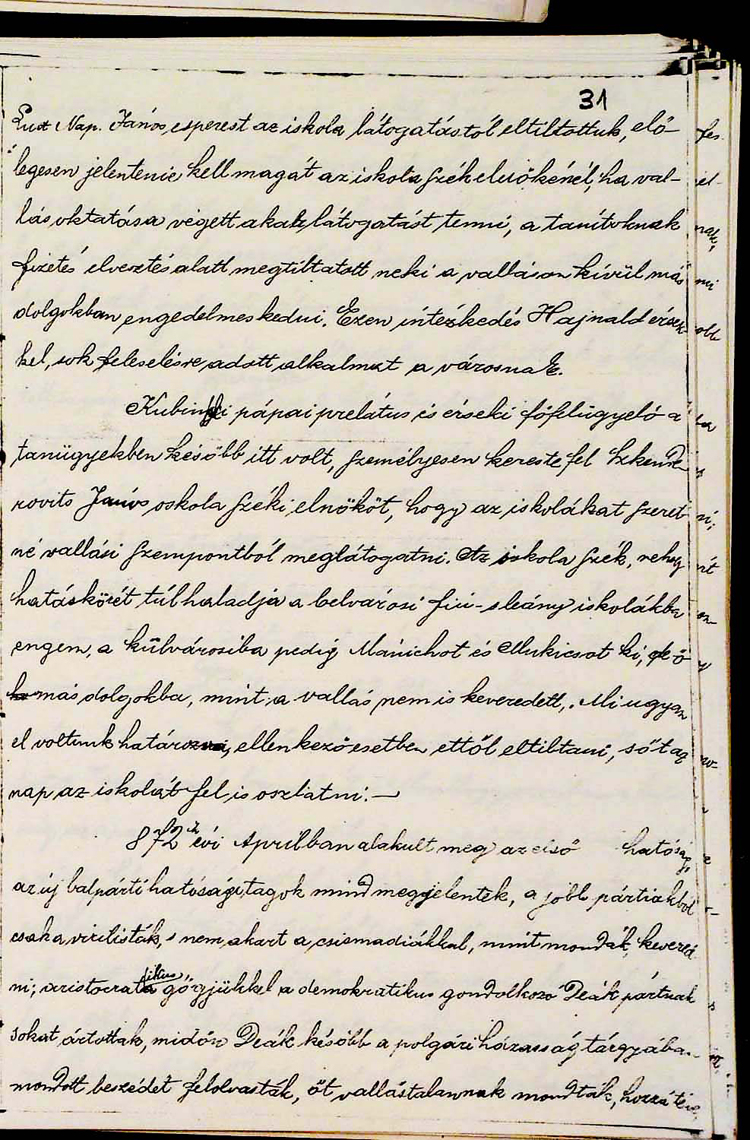 31
Nap. János esperest az iskola látogatástól eltiltottuk, elő-
legesen jelentenie kell magát az iskola szék elnökénél, ha val-
lás oktatása végett akar látogatást tenni, a tanítóknak
fizetés elvesztés alatt megtiltatott neki a valláson kívül más
dolgokban engedelmeskedni. Ezen intézkedés Hajnald érsek-
kel, sok feleselésre adott alkalmat a városnak.
pápai prelátus és érseki főfelügyelő a
tanügyekben később itt volt, személyesen kereste fel
rovits János oskola széki elnököt, hogy az iskolákat szeret-
né vallási szempontból meglátogatni. Az iskola szék, nehogy
hatáskörét túlhaladja a belvárosi fiú-s leány iskolákba
engem, a külvárosiba pedig Mánichot és Mukicsot ki, de ő
más dolgokba, mint a vallás nem is keveredett. Mi ugyan
el voltunk határozva, ellenkező esetben ettől eltiltani, sőt az
nap az iskolát fel is oszlatni. —
872ik évi Áprilban alakult meg az első hatóság,
az új balpárti hatósági tagok mind megjelentek, a jobb pártiakból
csak a virilisták, s nem akart a csismadiákkal, mint mondák, kevered-
ni; aristocratikus gőgjükkel a demokratikus gondolkozó Deák pártnak
sokat ártottak, midőn Deák később a polgári házasság tárgyában
mondott beszédét felolvasták, őt vallástalannak mondták, hozzá téve,